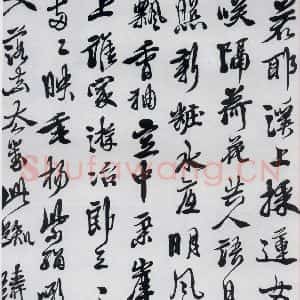 若耶溪上採蓮女
咲隔荷花共人語日
照新粧水底明風
飄香袖空中舉岸
上誰家遊冶郎三々
五々映垂楊紫騮嘶
入落花去見此踟躕
Shufawang.CN